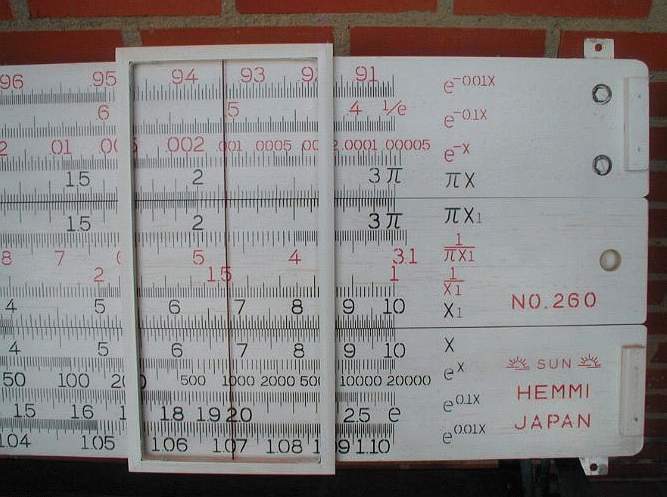 96 95 94 93 91 e^-0.01X
6 5 4 1/e e^-0.1X
01 002 001 0005 0001 00005 e^-X
15 2 3 π πX
15 2 3 π πX1
8 7 5 4 3.1 1/πX1
2 1.5 1 1/X1
4 5 6 7 8 9 10 X1
NO.260
4 5 6 7 8 9 10 X
50 100 500 1000 2000 10000 20000 e^X
SUN
15 16 18 19 20 25 e e^0.1X
HEMMI
JAPAN
1.04 1.05 1.06 1.07 1.08 1.10 e^0.01X